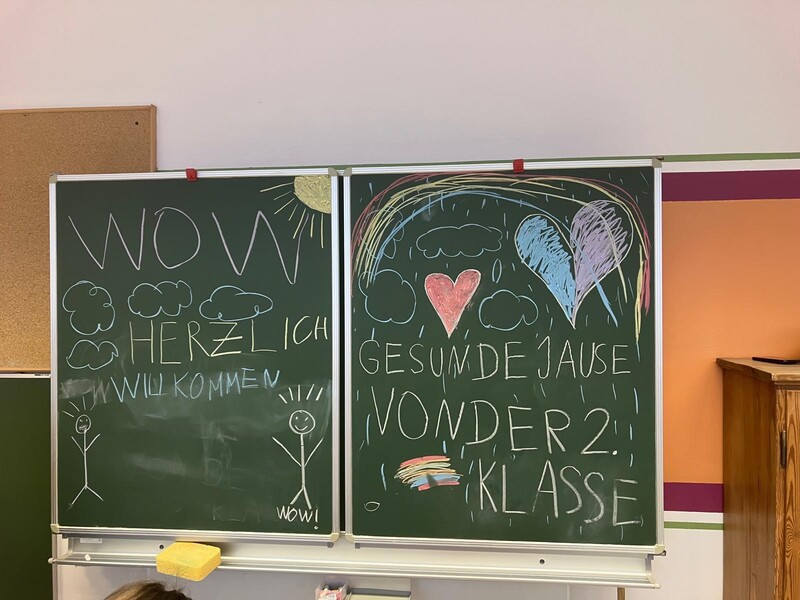 WOW
HERZLICH
WILLKOMMEN
WOW!
GESUNDE JAUSE
VON DER 2.
KLASSE